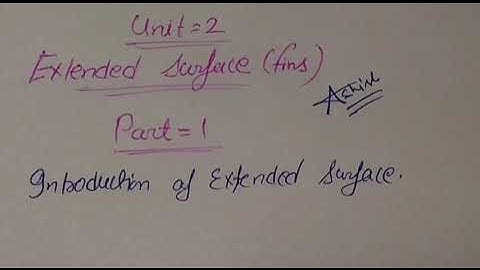 Unit=2
Extended Surface (fins)
Part=1
Introduction of Extended Surface.